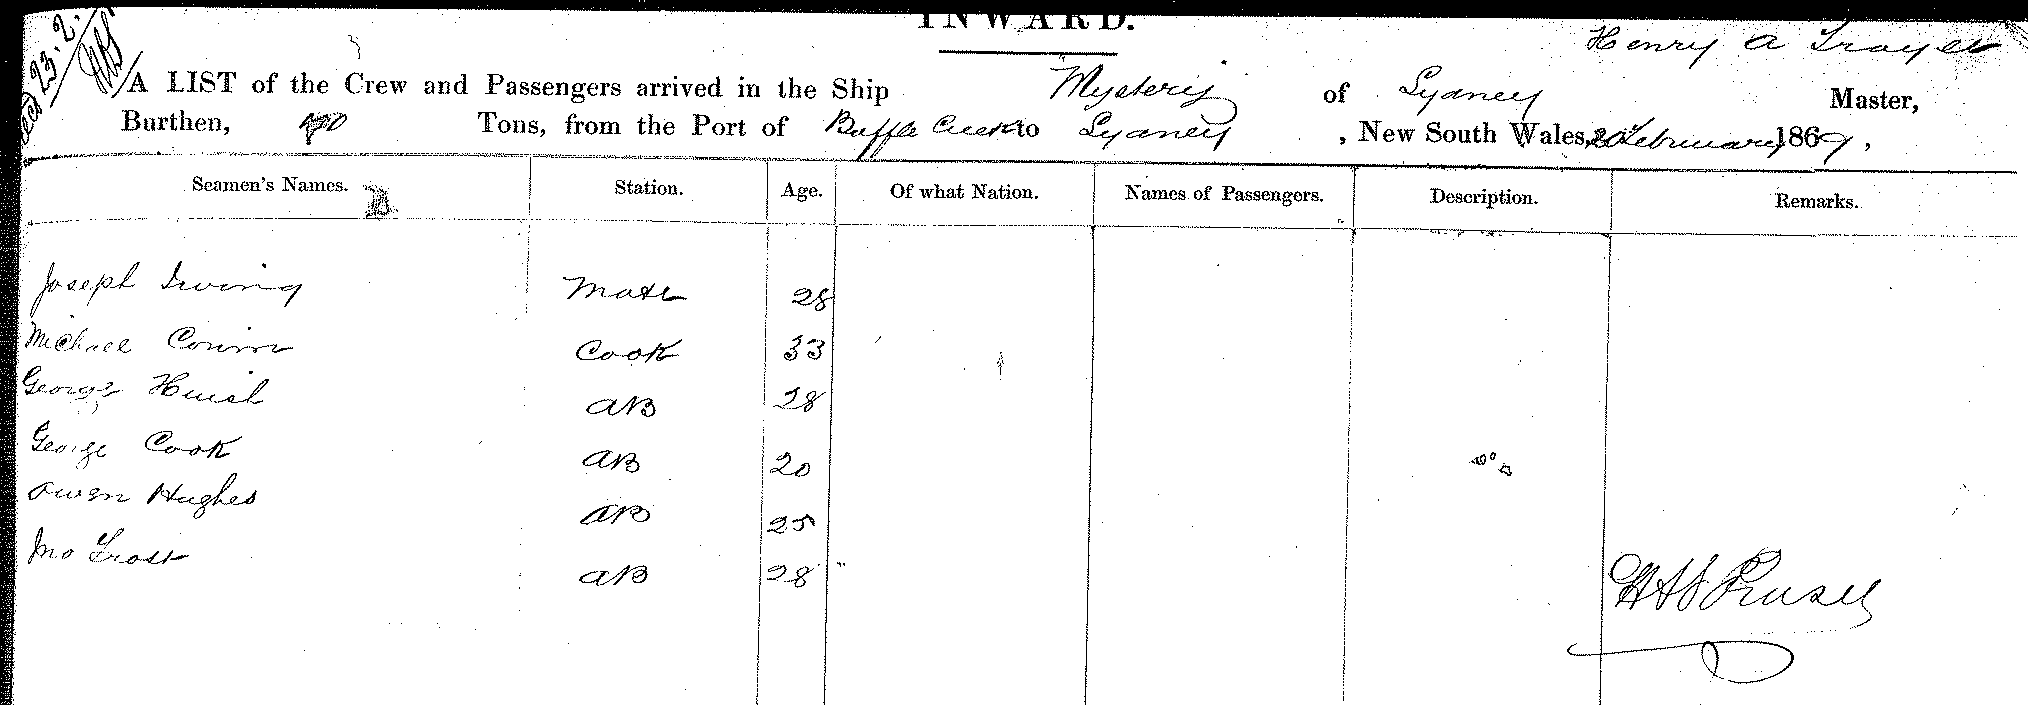 INWARD.
Henry A
A LIST of the Crew and Passengers arrived in the Ship Mystery of Sydney Master,
Burthen, Tons, from the Port of to Sydney, New South Wales, 20 February 1869.
Seamen's Names. Station. Age. Of what Nation. Names of Passengers. Description. Remarks.
Joseph Irving Mate 28
Michael Cook 33
George Huish AB 28
George Cook AB 20
Owen Hughes AB 25
Jno AB 28